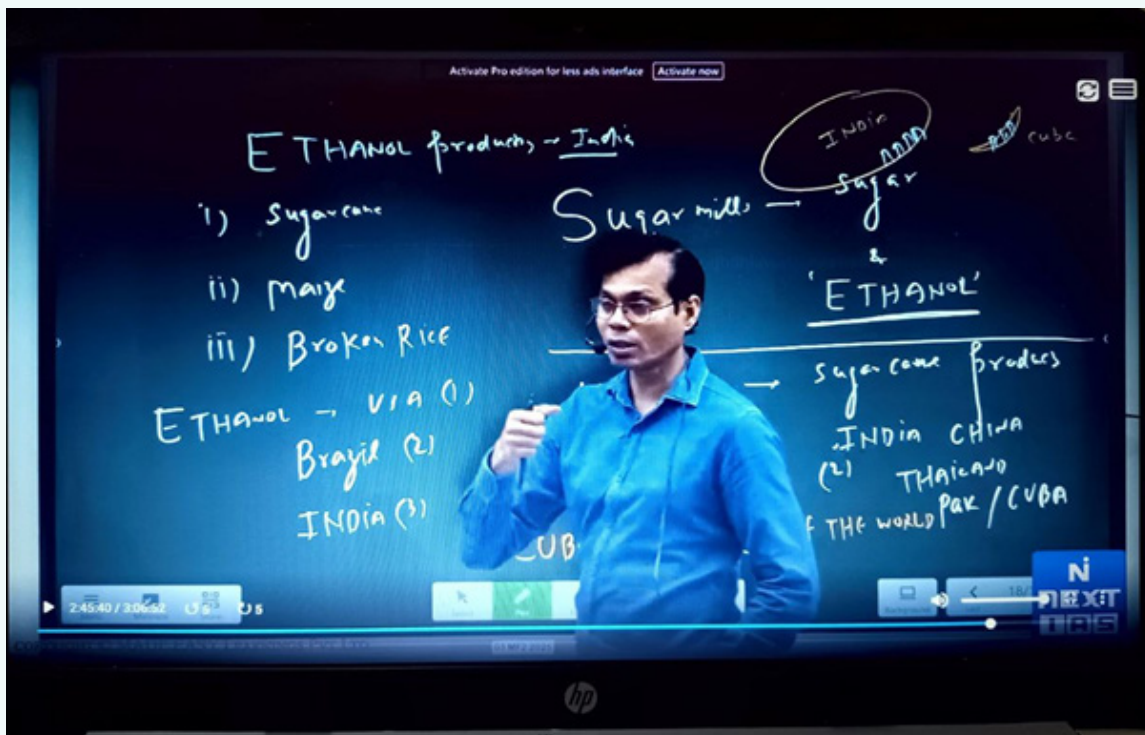 Activate Pro edition for less ads interface Activate now
ETHANOL produces → India
i) Sugarcane
ii) Maize
iii) Broken Rice
ETHANOL → USA (1)
Brazil (2)
INDIA (3)
INDIA
cuba
Sugar mills → Sugar
&
'ETHANOL'
→ Sugarcane produces
INDIA CHINA
(2) THAILAND
THE WORLD PAK / CUBA
CUB
2:45:40 / 3:06:52 5 5
Pen
Background
18/
N
NEXT
IAS
hp